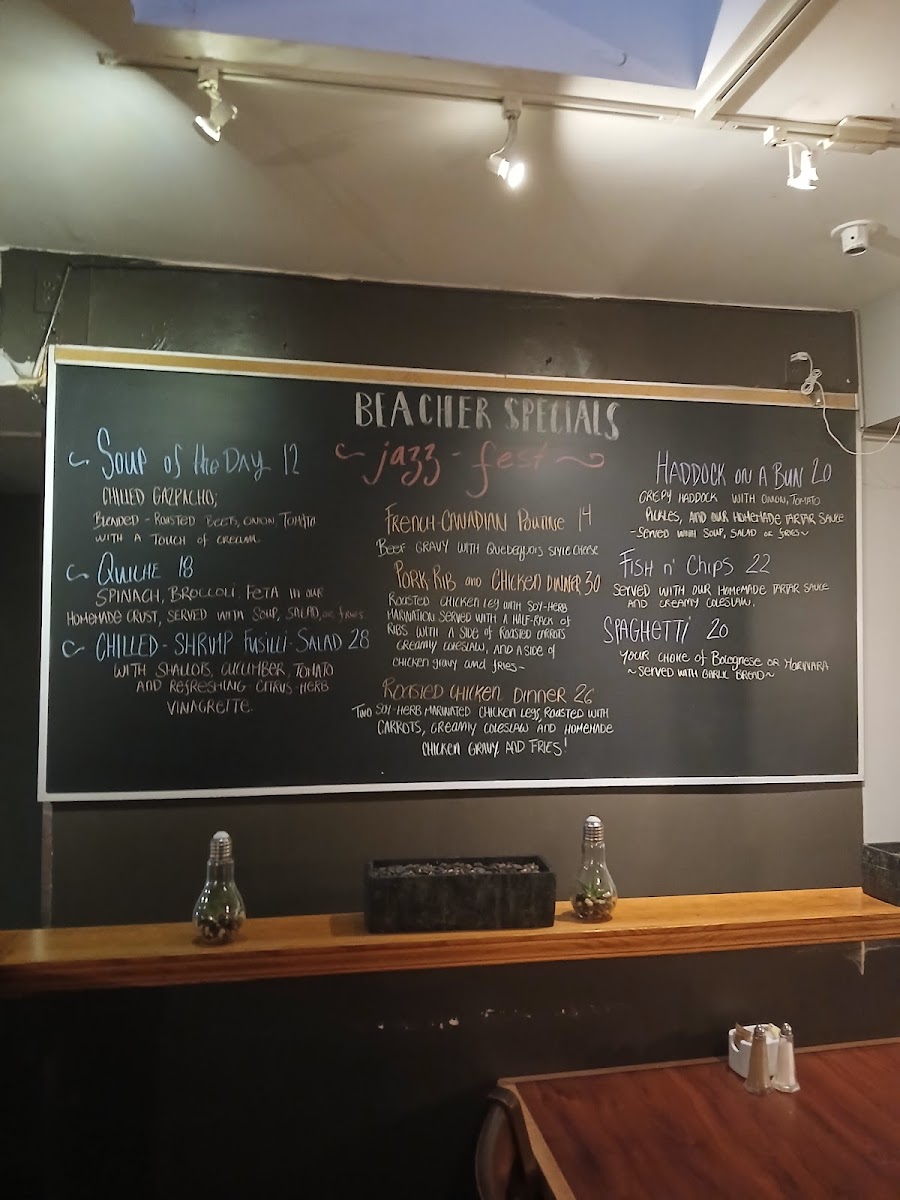 BEACHER SPECIALS
~ jazz - fest ~
Soup of the Day 12
CHILLED GAZPACHO;
BLENDED - ROASTED BEETS, ONION TOMATO
WITH A TOUCH OF CREAM.
QUICHE 18
SPINACH, BROCCOLI, FETA IN OUR
HOMEMADE CRUST, SERVED WITH SOUP, SALAD, OR FRIES
CHILLED - SHRIMP FUSILLI - SALAD 28
WITH SHALLOTS, CUCUMBER, TOMATO
AND REFRESHING CITRUS-HERB
VINAGRETTE.
FRENCH-CANADIAN POUTINE 14
BEEF GRAVY WITH QUEBEQUOIS STYLE CHEESE
PORK-RIB AND CHICKEN DINNER 30
ROASTED CHICKEN LEG WITH SOY-HERB
MARINATION SERVED WITH A HALF-RACK OF
RIBS WITH A SIDE OF ROASTED CARROTS
CREAMY COLESLAW, AND A SIDE OF
CHICKEN GRAVY AND FRIES~
ROASTED CHICKEN DINNER 26
TWO SOY-HERB MARINATED CHICKEN LEGS, ROASTED WITH
CARROTS, CREAMY COLESLAW AND HOMEMADE
CHICKEN GRAVY AND FRIES!
HADDOCK ON A BUN 20
CRISPY HADDOCK WITH ONION, TOMATO
PICKLES, AND OUR HOMEMADE TARTAR SAUCE
~SERVED WITH SOUP, SALAD OR FRIES~
FISH N' CHIPS 22
SERVED WITH OUR HOMEMADE TARTAR SAUCE
AND CREAMY COLESLAW.
SPAGHETTI 20
YOUR CHOICE OF BOLOGNESE OR MARINARA
~SERVED WITH GARLIC BREAD~